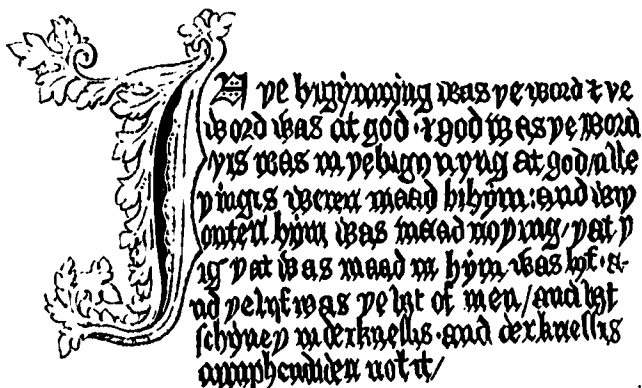 IN ye bigynnyng was ye word & ye
word was at god · & god was ye word
yis was in ye bigynnyng at god / alle
yingis weren maad bi hym : and wiy
outen hym was maad no ying / yat y
ig yat was maad in hym was lyf · a-
nd ye lyf was ye liyt of men / and liyt
schyney in derknessis · and derknessis
comprehendiden not it /